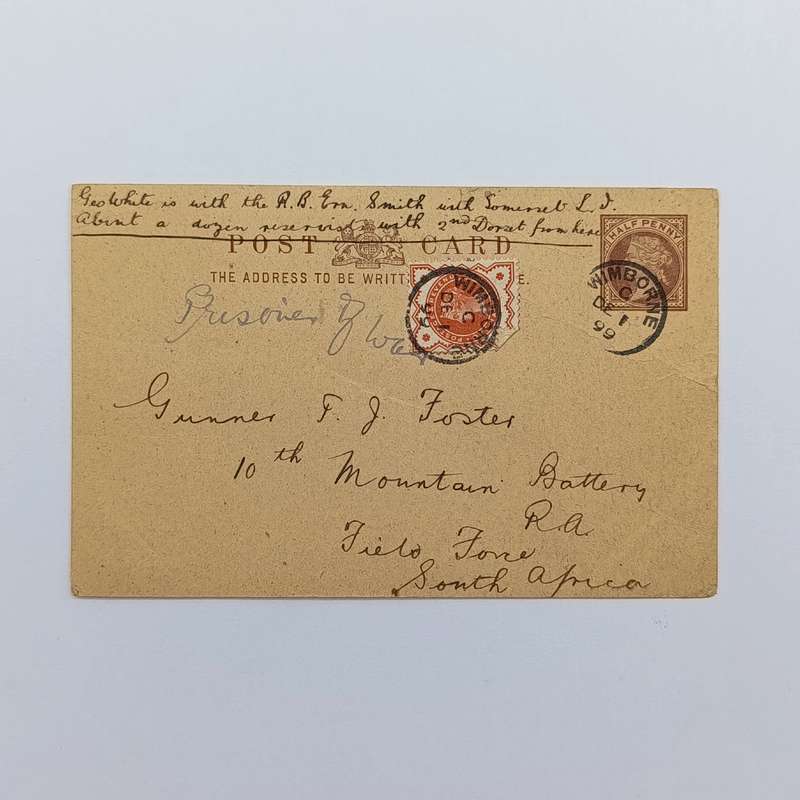 Geo White is with the R.B. Ern. Smith with Somerset L.I.
About a dozen reservists with 2nd Dorset from here
POST CARD
HALF PENNY
THE ADDRESS TO BE WRITT E.
WIMBORNE
C
DE 1
99
WIMBORNE
C
DE 1
99
Prisoner of War
Gunner F. J. Foster
10th Mountain Battery
R.A.
Field Force
South Africa